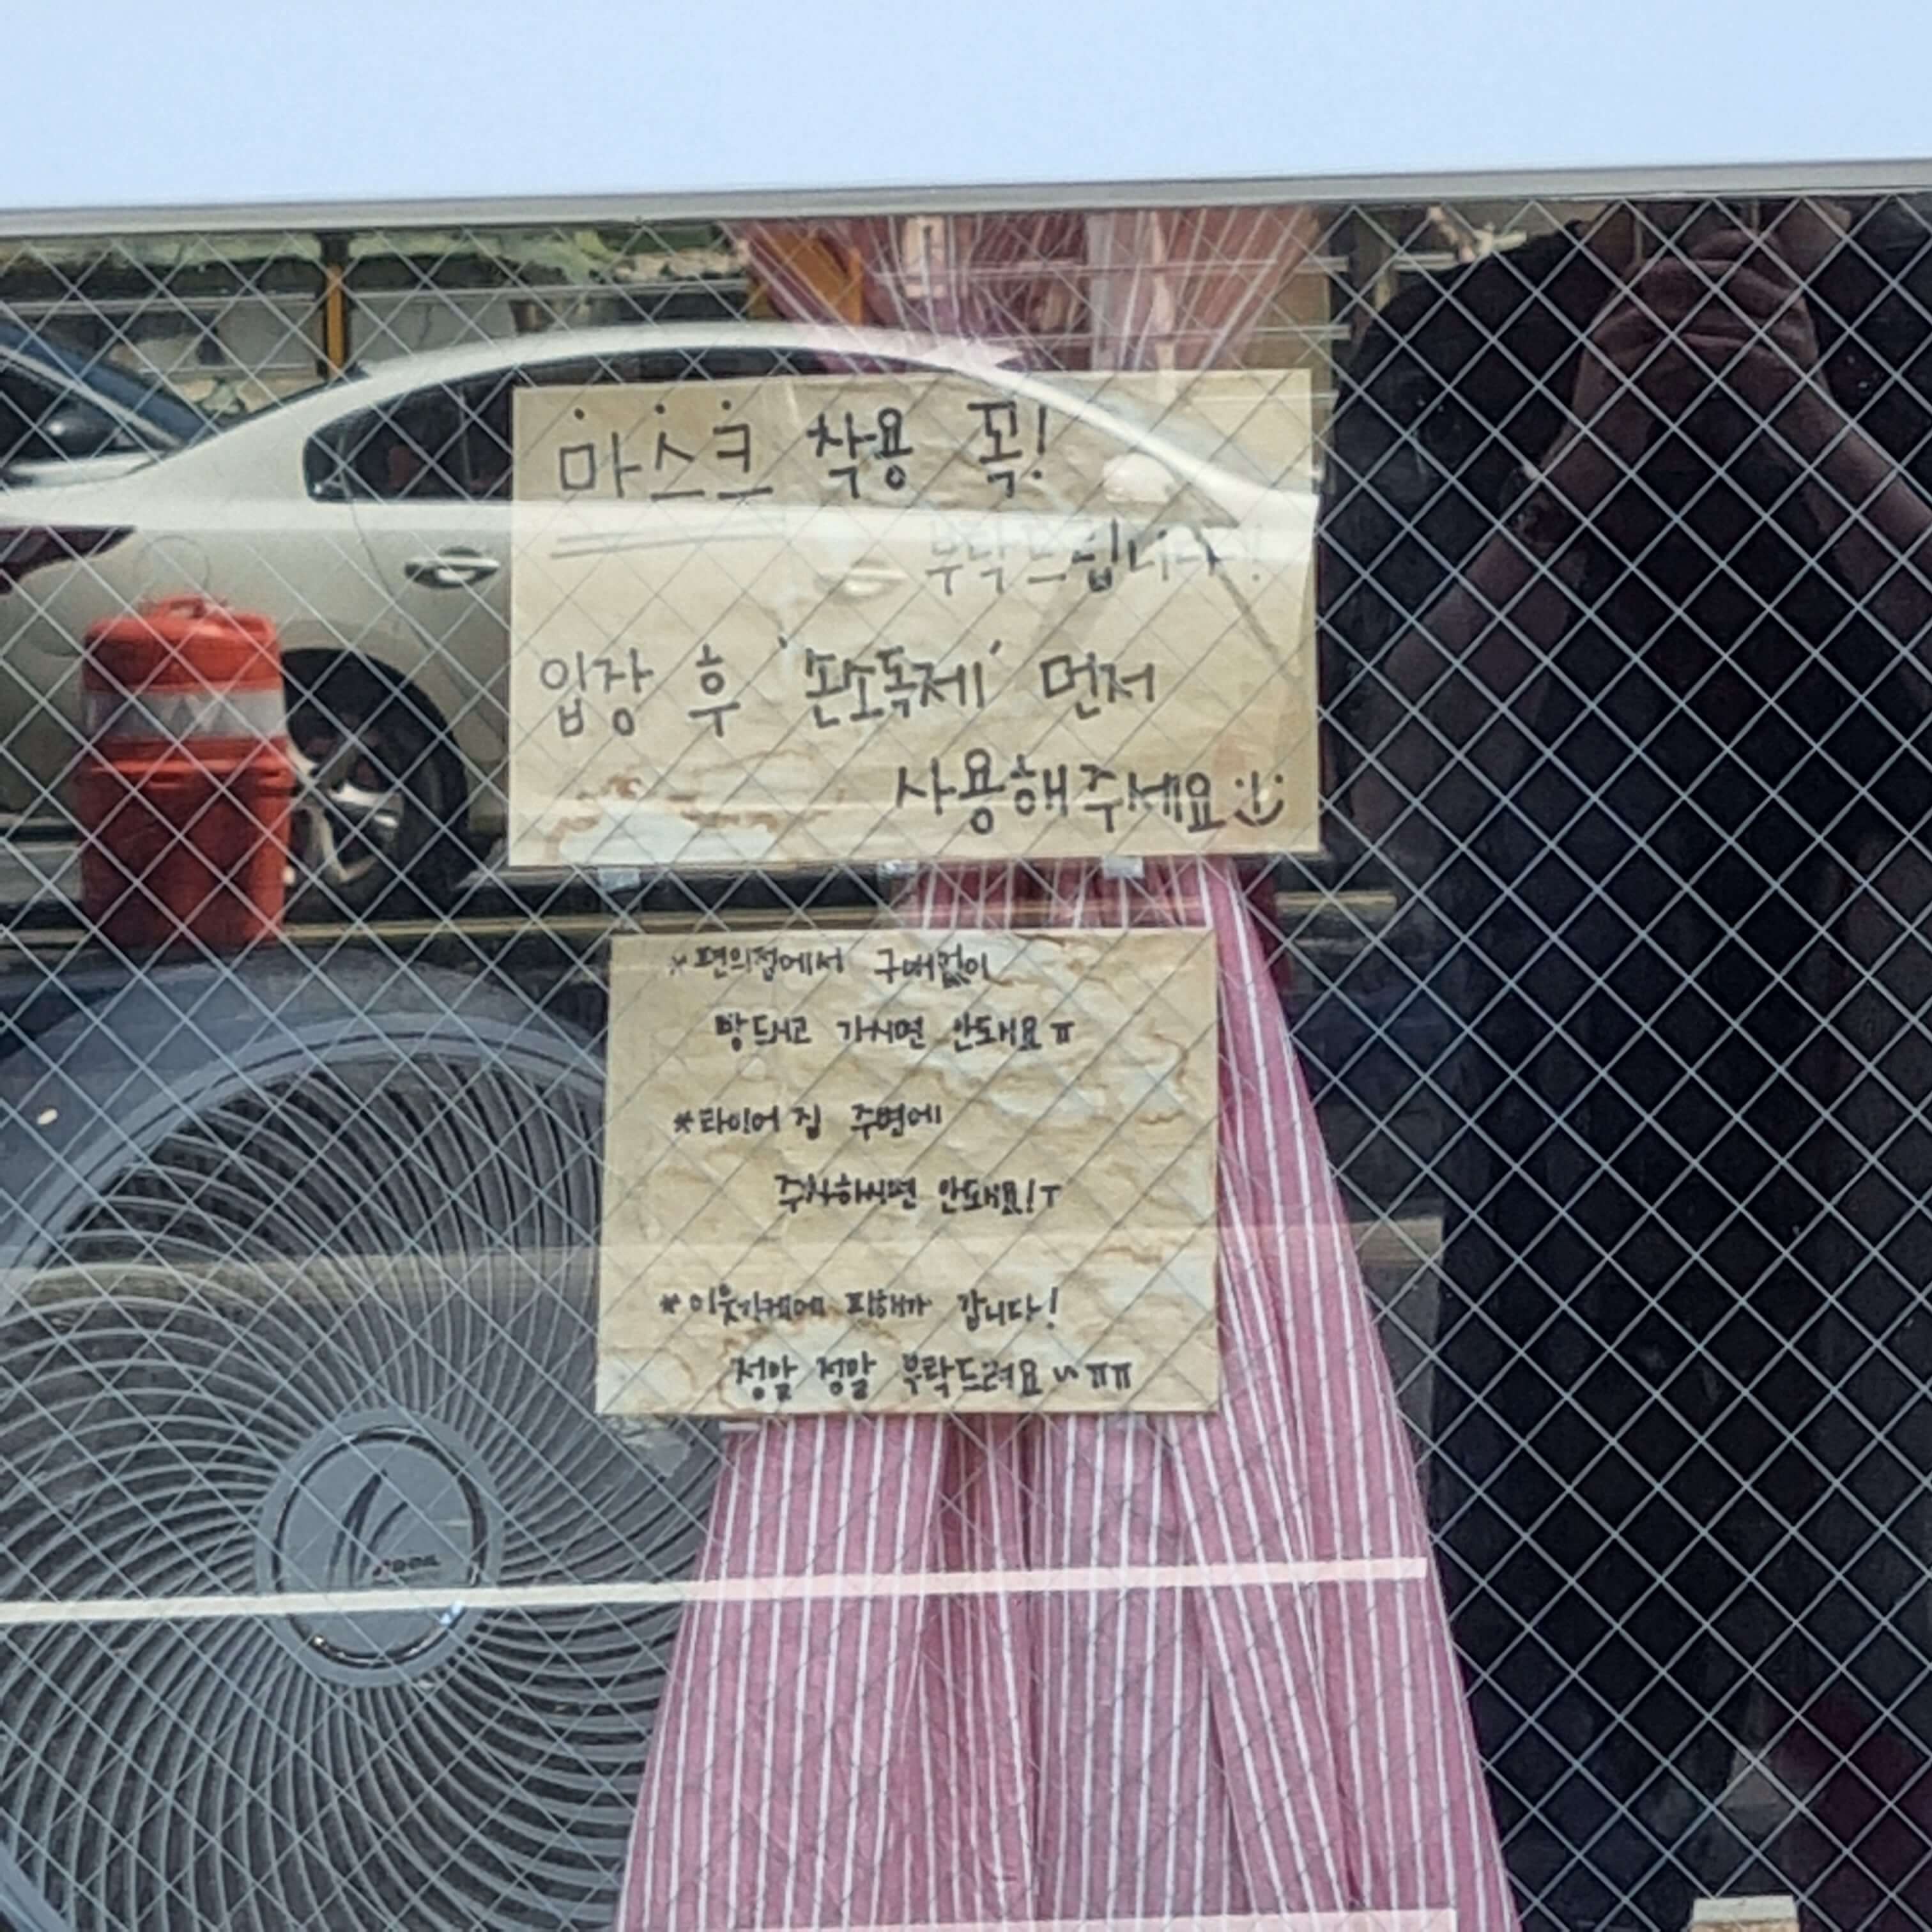 마스크 착용 꼭!
부탁드립니다!
입장 후 '손소독제' 먼저
사용해주세요 :)
*편의점에서 구매없이
빵드시고 가시면 안돼요ㅠ
*타이어 집 주변에
주차하시면 안돼요!ㅜ
*이웃가게에 피해가 갑니다!
정말 정말 부탁드려요~ㅠㅠ